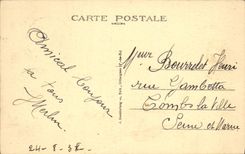 CARTE POSTALE
Amical Bonjour
à tous
Merlin
24-8-32
Mr Bourdet Henri
rue Gambetta
Combs la Ville
Seine et Marne